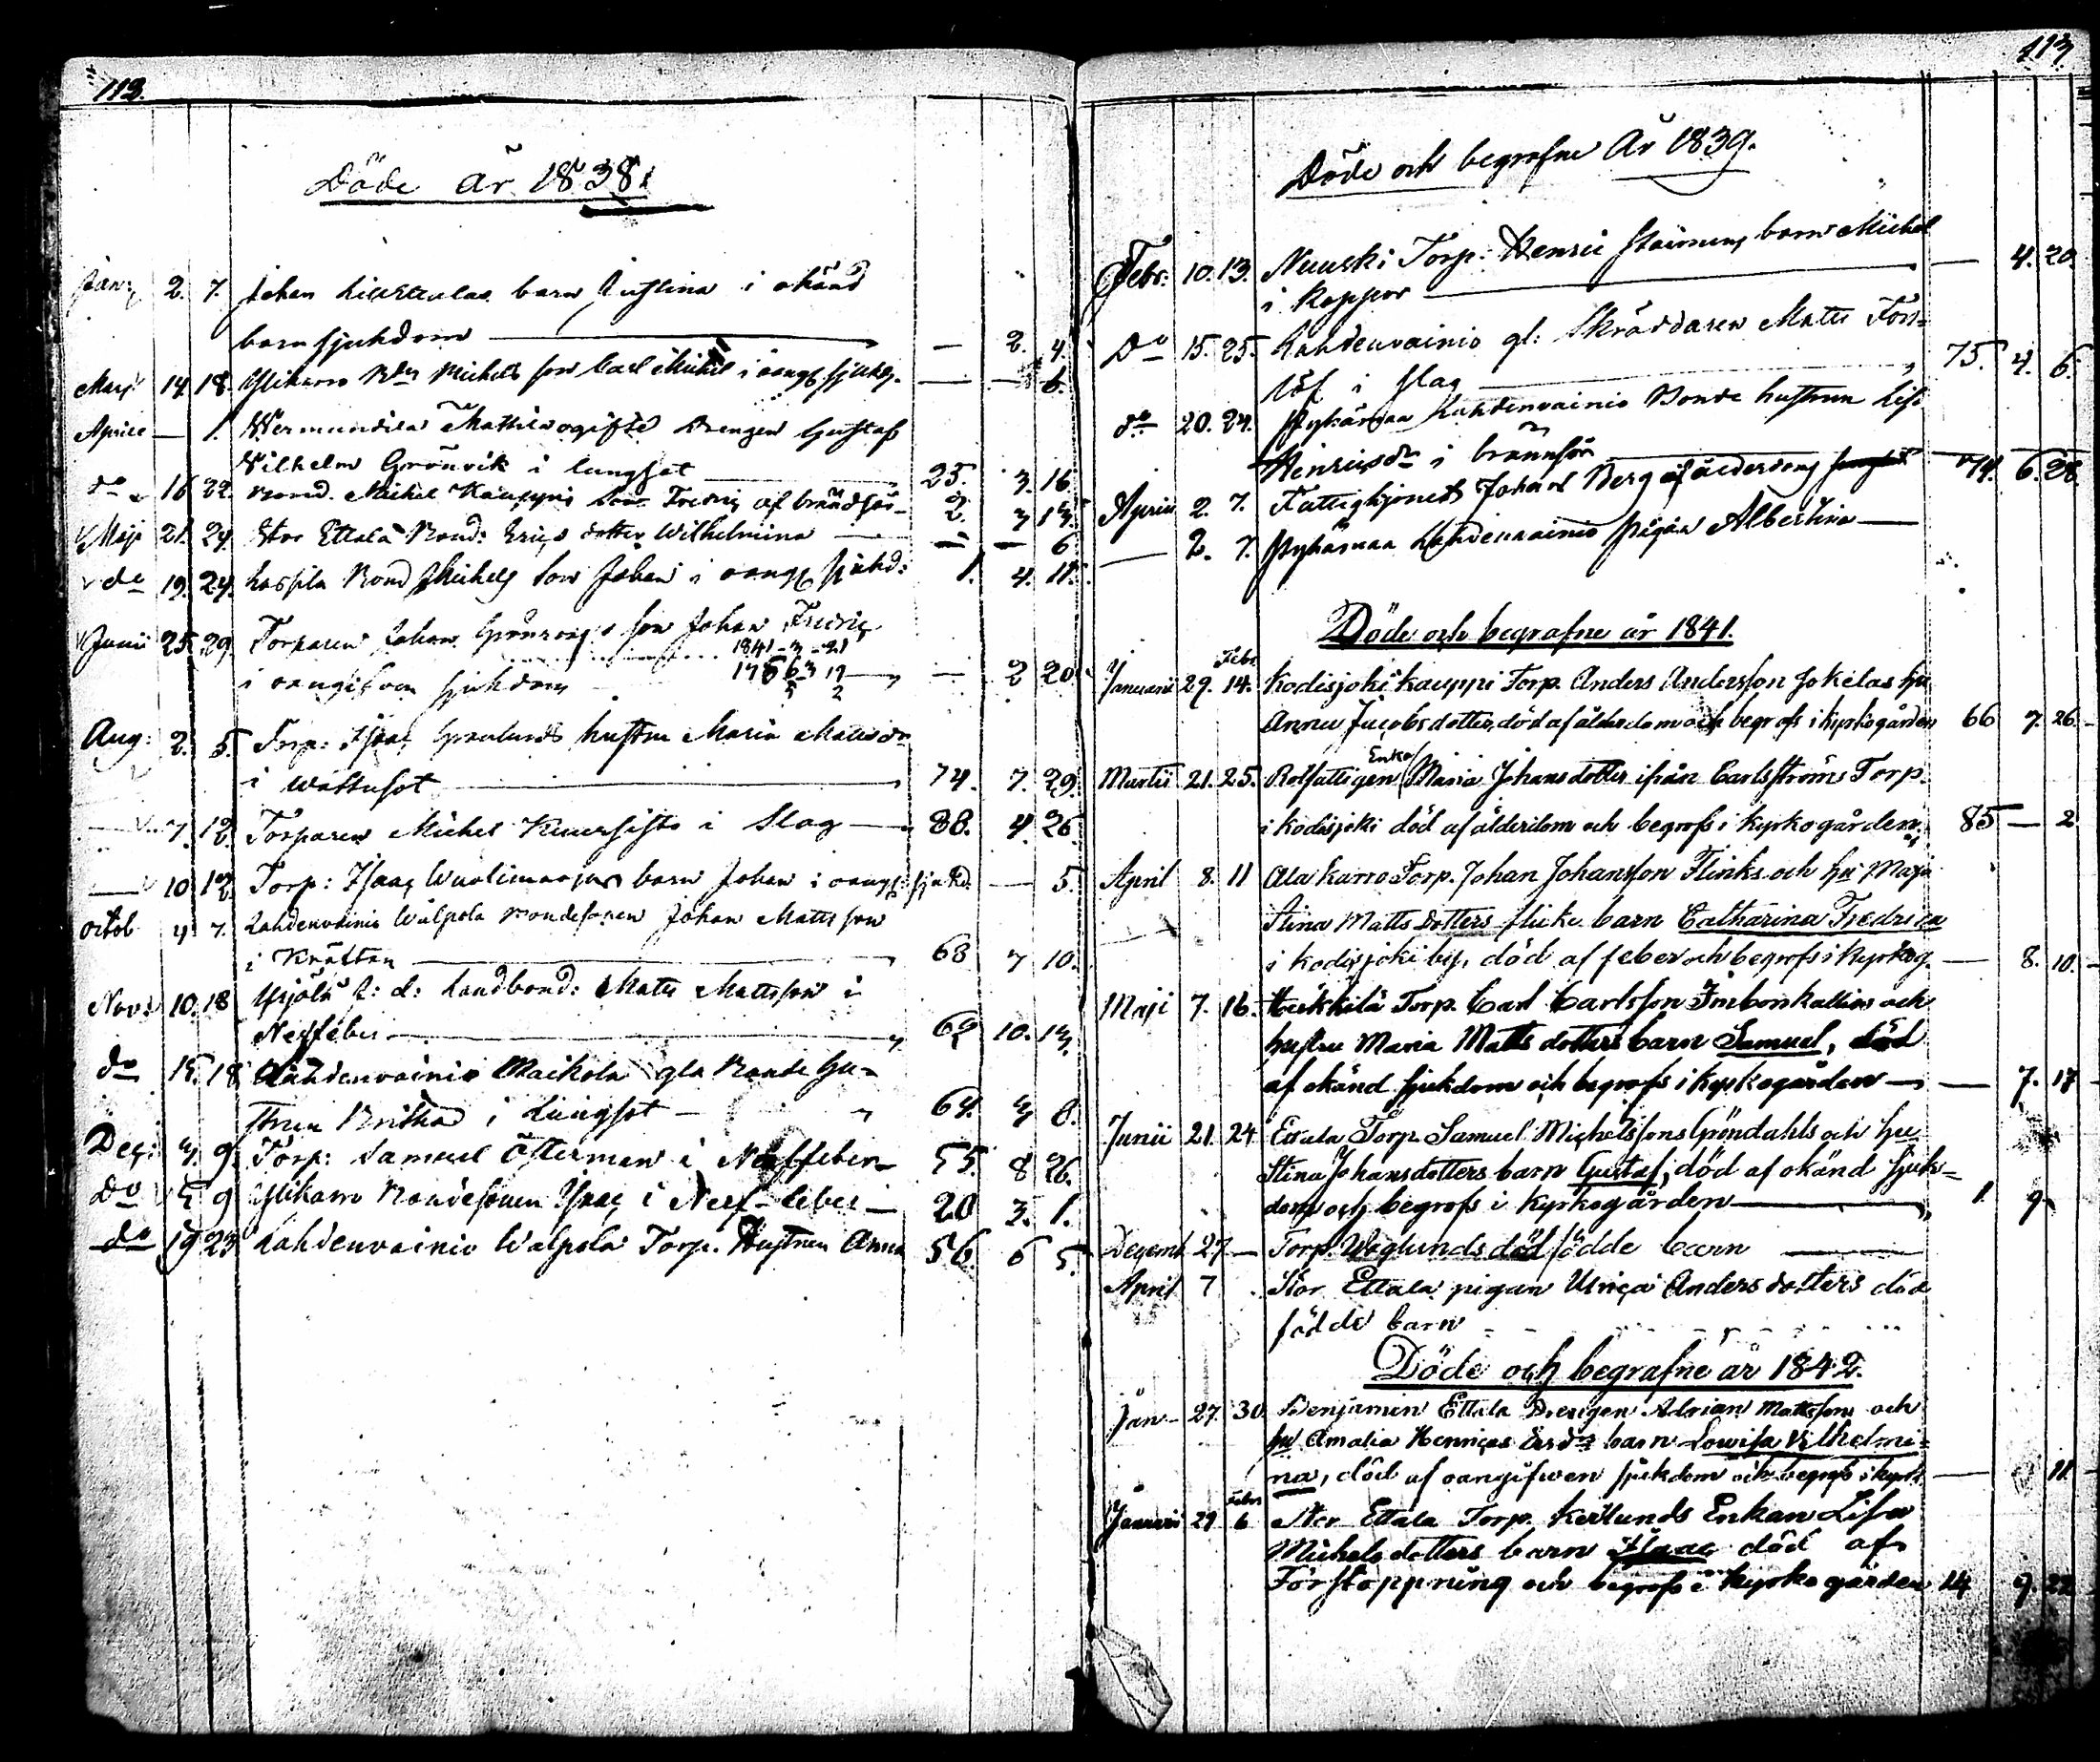 112.
Döde år 1838.
Jan: 2. 7. Johan barn Justina i okänd
barnsjukdom — — 2. 4.
Mars 14 18. Ylikarro Michels son Carl Michel i oangf sjukd. — — 6.
Aprill — 1. Hermundila Mattila ogifte Drengen Gustaf
Vilhelm Grönvik i lungsot 25. 3. 16
do 16 22. Bond. Michel Kauppis son Fredric af 2. 3 13.
Maji 21. 24. Stor Ettala Bond: Erics dotter Wilhelmina — — 6
do 19. 24. Lassila Bond Michels son Johan i oangf sjukd: 1. 4. 11.
Junii 25. 29. Torparen Johan son Johan Fredric
1841-3-21
i oangifven sjukdom — 2 20
Aug: 2. 5. Torp: Isaac Grönlunds hustru Maria Matsdr
i Wattusot 74. 7. 29.
— 7. 12. Torparen Michel i Slag — 88. 4 26.
— 10 12. Torp: Isaac barn Johan i oangf: sjukd. — 5.
octob 4 7. Lahdenvainio Walpola Bondesonen Johan Matts son
i Kräftan 68 7 10.
Nov: 10. 18 f: d: Landbond: Matts Mattsson i
Nerffeber 62 10. 13.
do 15. 18 Lahdenvainio Maikola gla Bonde hu-
stru i Lungsot — 64. 3 8.
Dec: 3. 9. Torp: Samuel Österman i Nerffeber 55. 8 26.
Do 5 9 Ylikarro Bondesonen Isac i Nerf-feber — 20 3. 1.
do 19 23 Lahdenvainio Walpola Torp. Hustrun Anna 56. 6 5.
113
Döde och begrafne År 1839.
Febr. 10. 13. Nuuski Torp: Henric barn Michel
i Koppor — 4. 20.
Do 15. 25. Lahdenvainio gl: Skräddaren Matts Fors-
löf i slag 75. 4. 6.
do 20. 24. Pyhämaa Lahdenvainio Bonde hustrun Lisa
Henricsdr i brännsjö 74. 6. 28
Aprill 2. 7. Fattighjonet Johan Berg af ålderdom
— 2. 7. Pyhämaa Lahdenvainio Pigan Albertina —
Döde och begrafne år 1841.
Januarii 29. Febr 14. Kodisjoki Kauppi Torp. Anders Andersson Jokelas hu
Anna Jacobsdotter, död af ålderdom och begrofs i kyrkogården 66 7. 26.
Martii 21. 25. Rotfattigen Enka Maria Johansdotter ifrån Carlströms Torp.
i Kodisjoki död af ålderdom och begrofs i kyrkogården. 85 — 2
April 8. 11 Ala Karro Torp. Johan Johansson Flinks och hu Maja
Stina Matts Dotters flicke barn Catharina Fredrica
i Kodisjoki by, död af feber och begrofs i kyrkog. — 8. 10.
Maji 7. 16. Heikkilä Torp. Carl Carlsson och
hustru Maria Matts dotters barn Samuel, död
af okänd sjukdom och begrofs i kyrkogården — 7. 17
Junii 21. 24 Ettala Torp. Samuel Michelssons Gröndahls och hu
Stina Johansdotters barn Gustaf, död af okänd sjuk-
dom och begrofs i kyrkogården 1. 9.
Decemb. 27 — Torp. Weglunds död födde barn
April 7 Stor Ettala pigan Ulrica Anders dotters död
födde barn
Döde och begrafne år 1842.
Jan- 27. 30. Benjamin Ettala Drengen Adrian Mattsson och
hu Amalia Henrics barn Lowisa Vilhelmi-
na, död af oangifwen sjukdom och begrofs i kyrk — 11.
Januari 29 Febr 6 Stor Ettala Torp. Kedlunds Enkan Lisa
Michels dotters barn Isaac död af
Förstoppning och begrofs i kyrkogården 14 9. 22